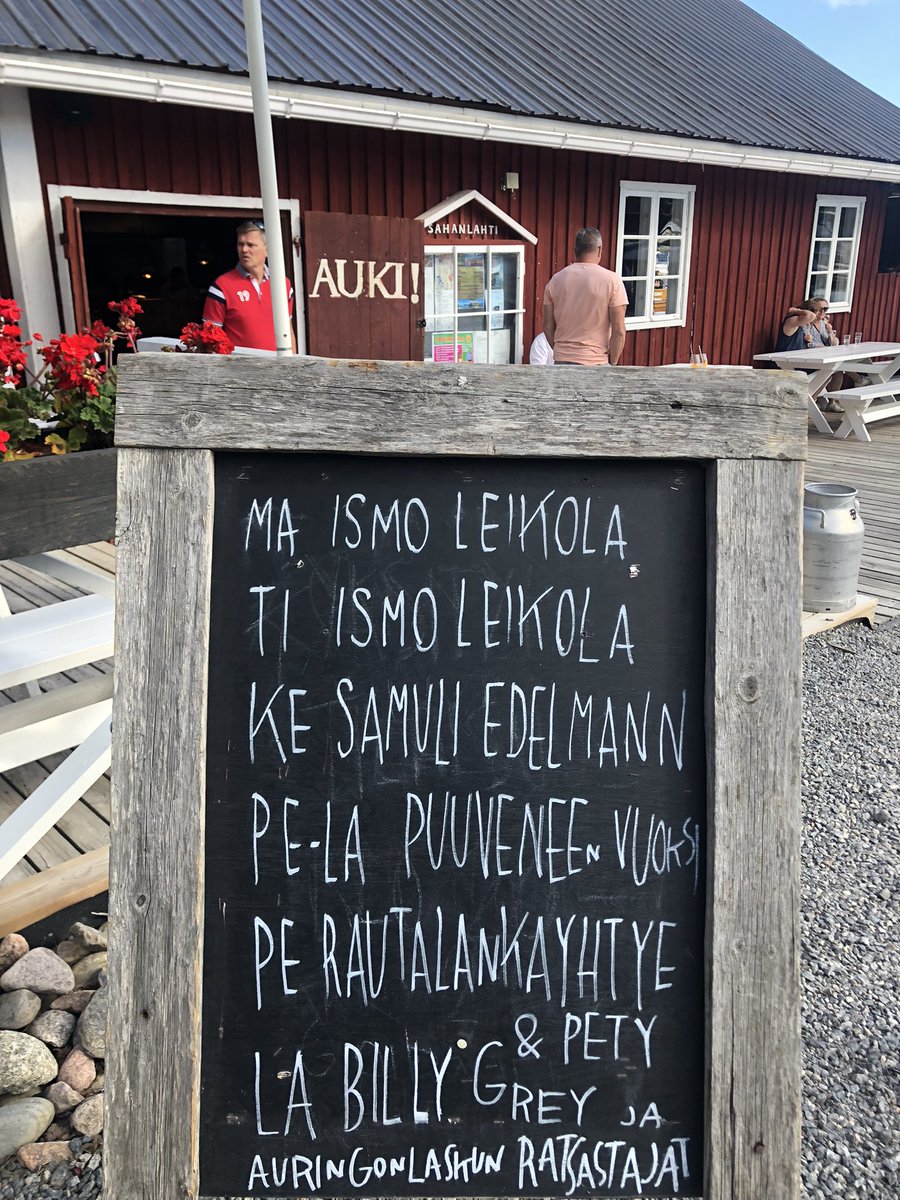 SAHANLAHTI
AUKI!
19
MA ISMO LEIKOLA
TI ISMO LEIKOLA
KE SAMULI EDELMANN
PE-LA PUUVENEEN VUOKSI
PE RAUTALANKAYHTYE
LA BILLY G & PETY
GREY JA
AURINGONLASKUN RATSASTAJAT